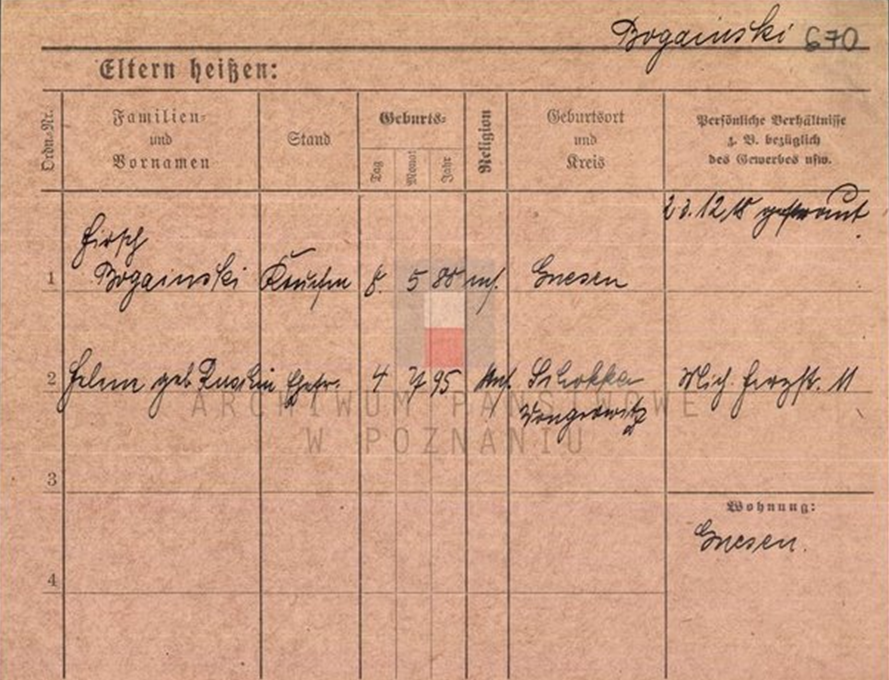 Bogainski 670
Eltern heißen:
Ordn.-Nr.
Familien-
und
Vornamen
Stand
Geburts-
Tag
Monat
Jahr
Religion
Geburtsort
und
Kreis
Persönliche Verhältnisse
z. B. bezüglich
des Gewerbes usw.
23.12.18 getraut
Hirsch
1 Bogainski 8. 5 80 mos. Gnesen
2 geb. Ehefr. 4 7 95 mos. Schokken
Wongrowitz
11
ARCHIWUM PAŃSTWOWE
W POZNANIU
3
Wohnung:
Gnesen.
4